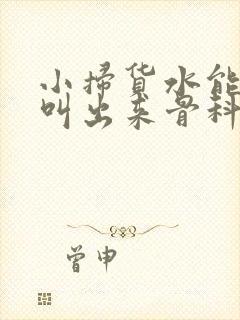 小掃货水能
叫出来骨科
曾申